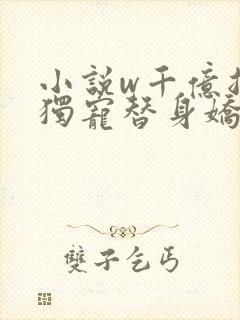 小說w千億
獨寵替身嬌
雙子乞丐